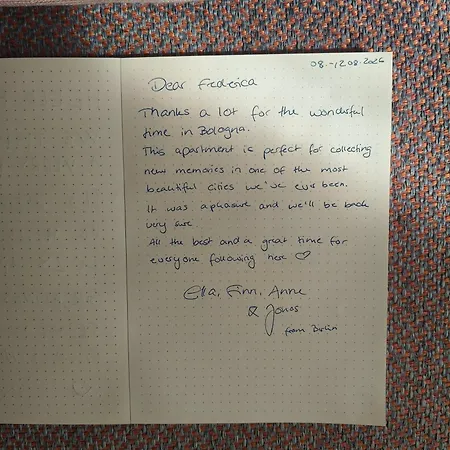 08.-12.08.2026
Dear Federica
Thanks a lot for the wonderful
time in Bologna.
This apartment is perfect for collecting
new memories in one of the most
beautiful cities we've ever been.
It was a pleasure and we'll be back
very sure
All the best and a great time for
everyone following here ♡
Ella, Finn, Anne
& Jonas
from Berlin